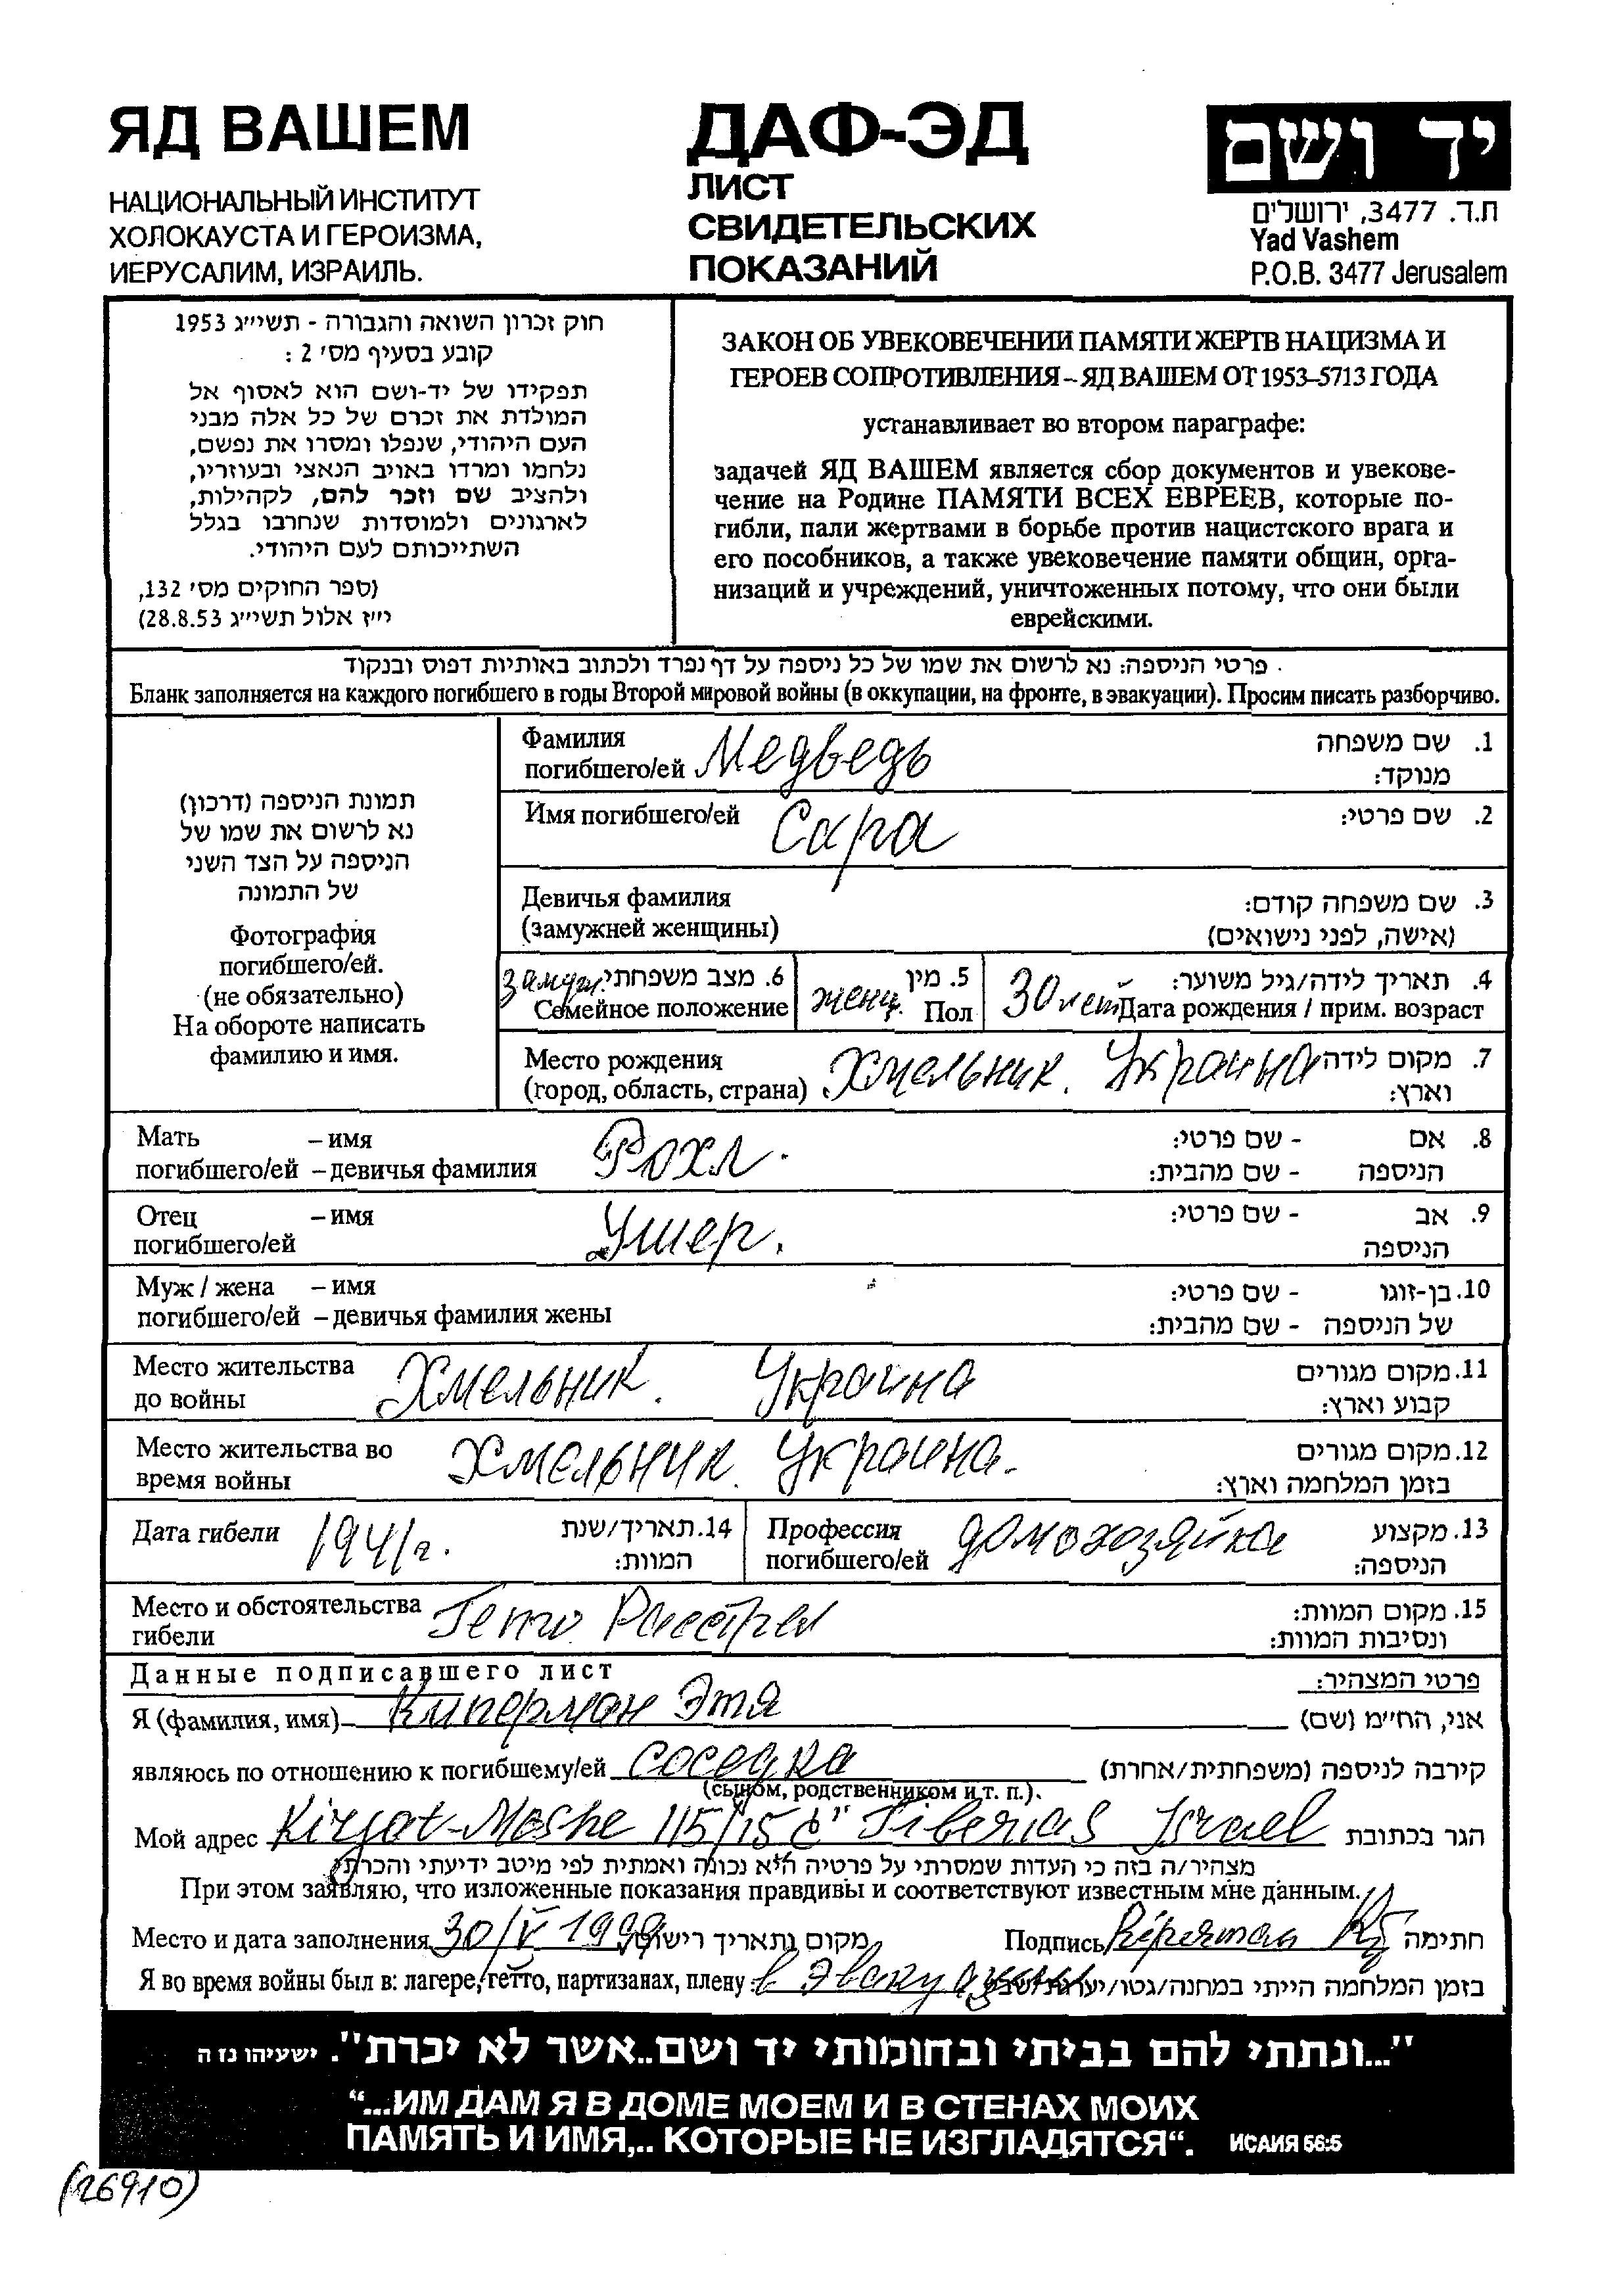 ЯД ВАШЕМ
НАЦИОНАЛЬНЫЙ ИНСТИТУТ
ХОЛОКАУСТА И ГЕРОИЗМА,
ИЕРУСАЛИМ, ИЗРАИЛЬ.
ДАФ-ЭД
ЛИСТ
СВИДЕТЕЛЬСКИХ
ПОКАЗАНИЙ
יד ושם
ת.ד. 3477, ירושלים
Yad Vashem
P.O.B. 3477 Jerusalem
חוק זכרון השואה והגבורה - תשי״ג 1953
קובע בסעיף מס׳ 2 :
תפקידו של יד-ושם הוא לאסוף אל
המולדת את זכרם של כל אלה מבני
העם היהודי, שנפלו ומסרו את נפשם,
נלחמו ומרדו באויב הנאצי ובעוזריו,
ולהציב שם וזכר להם, לקהילות,
לארגונים ולמוסדות שנחרבו בגלל
השתייכותם לעם היהודי.
(ספר החוקים מס׳ 132,
י״ז אלול תשי״ג 28.8.53)
ЗАКОН ОБ УВЕКОВЕЧЕНИИ ПАМЯТИ ЖЕРТВ НАЦИЗМА И
ГЕРОЕВ СОПРОТИВЛЕНИЯ – ЯД ВАШЕМ ОТ 1953–5713 ГОДА
устанавливает во втором параграфе:
задачей ЯД ВАШЕМ является сбор документов и увекове-
чение на Родине ПАМЯТИ ВСЕХ ЕВРЕЕВ, которые по-
гибли, пали жертвами в борьбе против нацистского врага и
его пособников, а также увековечение памяти общин, орга-
низаций и учреждений, уничтоженных потому, что они были
еврейскими.
פרטי הניספה: נא לרשום את שמו של כל ניספה על דף נפרד ולכתוב באותיות דפוס ובנקוד
Бланк заполняется на каждого погибшего в годы Второй мировой войны (в оккупации, на фронте, в эвакуации). Просим писать разборчиво.
תמונת הניספה (דרכון)
נא לרשום את שמו של
הניספה על הצד השני
של התמונה
Фотография
погибшего/ей.
(не обязательно)
На обороте написать
фамилию и имя.
Фамилия
погибшего/ей Медведь
1. שם משפחה
מנוקד:
Имя погибшего/ей Сара
2. שם פרטי:
Девичья фамилия
(замужней женщины)
3. שם משפחה קודם:
(אישה, לפני נישואים)
замуж. 6. מצב משפחתי
Семейное положение
женщ. 5. מין
Пол
30 лет 4. תאריך לידה/גיל משוער:
Дата рождения / прим. возраст
Место рождения
(город, область, страна) Хмельник. Украина
7. מקום לידה
וארץ:
Мать – имя
погибшего/ей – девичья фамилия
Рохл.
8. אם - שם פרטי:
הניספה - שם מהבית:
Отец – имя
погибшего/ей
Ушер.
9. אב - שם פרטי:
הניספה
Муж / жена – имя
погибшего/ей – девичья фамилия жены
10. בן-זוגו - שם פרטי:
של הניספה - שם מהבית:
Место жительства
до войны
Хмельник. Украина
11. מקום מגורים
קבוע וארץ:
Место жительства во
время войны
Хмельник. Украина.
12. מקום מגורים
בזמן המלחמה וארץ:
Дата гибели 1941 г.
14. תאריך/שנת
המוות:
Профессия
погибшего/ей домохозяйка
13. מקצוע
הניספה:
Место и обстоятельства
гибели
Гетто Расстрел
15. מקום המוות:
ונסיבות המוות:
Данные подписавшего лист
פרטי המצהיר:
Я (фамилия, имя) Киперман Этя אני, הח״מ (שם)
являюсь по отношению к погибшему/ей соседка קירבה לניספה (משפחתית/אחרת)
(сыном, родственником и т. п.).
Мой адрес Kirjat-Moshe 115/15 Tiberias Israel הגר בכתובת
מצהיר/ה בזה כי העדות שמסרתי על פרטיה היא נכונה ואמתית לפי מיטב ידיעתי והכרתי
При этом заявляю, что изложенные показания правдивы и соответствуют известным мне данным.
Место и дата заполнения 30/V 1999 מקום ותאריך רישום Подпись Kiperman חתימה
Я во время войны был в: лагере, гетто, партизанах, плену: в эвакуации בזמן המלחמה הייתי במחנה/גטו/יערות/שבי
"...ונתתי להם בביתי ובחומותי יד ושם..אשר לא יכרת". ישעיהו נז ה
“...ИМ ДАМ Я В ДОМЕ МОЕМ И В СТЕНАХ МОИХ
ПАМЯТЬ И ИМЯ,.. КОТОРЫЕ НЕ ИЗГЛАДЯТСЯ“. ИСАИЯ 56:5
(26910)